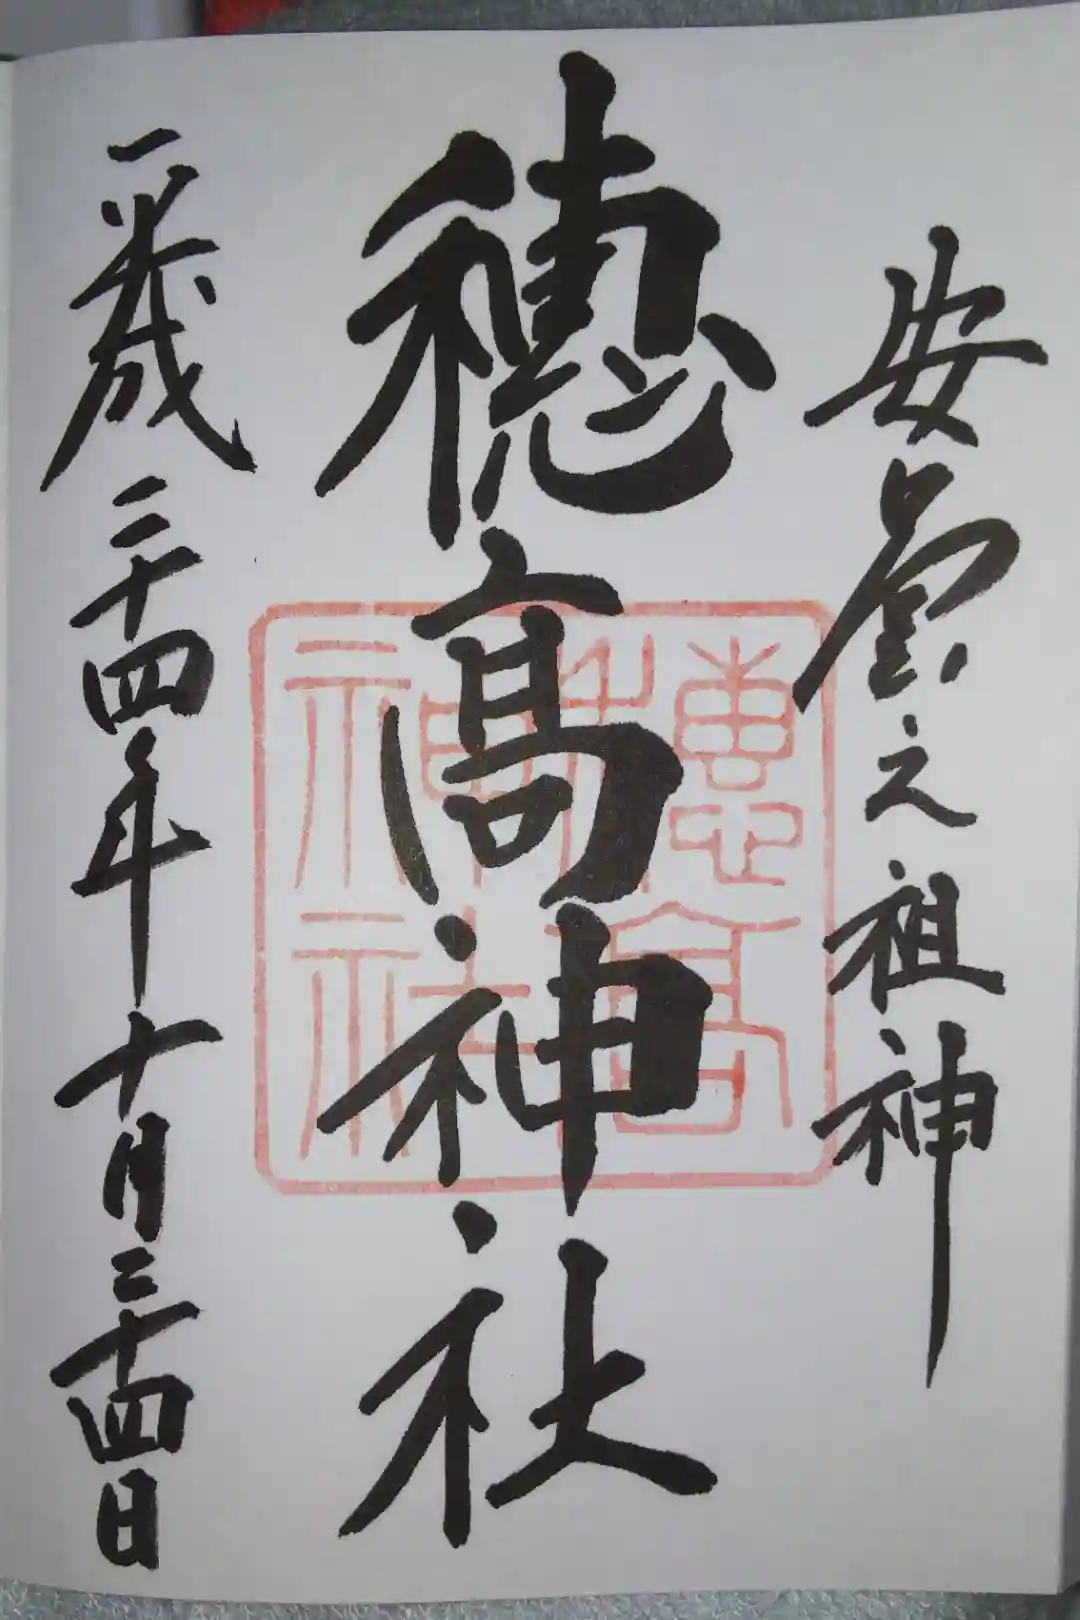 安曇之祖神
穂髙神社
穂高
神社
平成二十四年十月二十四日